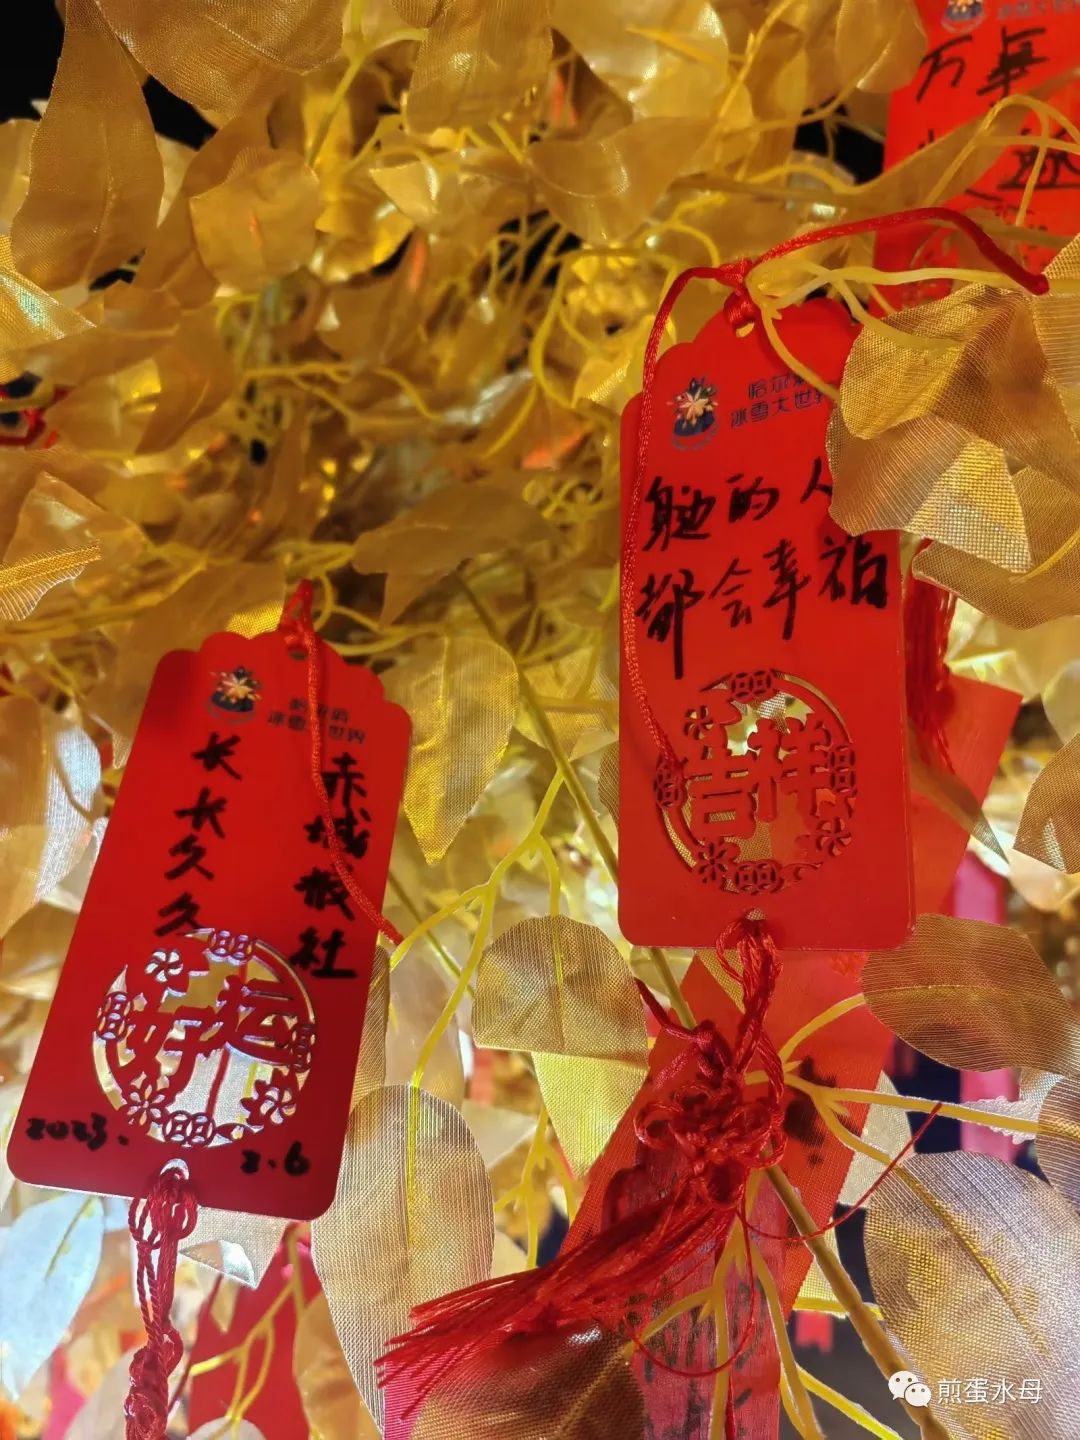 万事
哈尔滨
冰雪大世界
的人
都会幸福
吉祥
哈尔滨
冰雪大世界
赤城板社
长长久久
好运
2023.
2.6
煎蛋水母